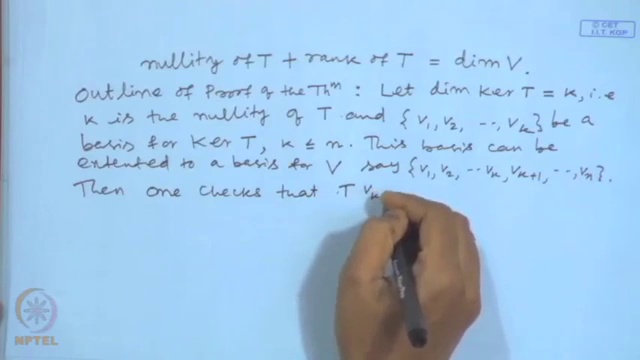 © CET
I.I.T. KGP
nullity of T + rank of T = dim V.
Outline of Proof of the Thm : Let dim Ker T = k, i.e
k is the nullity of T and {v1, v2, ··, vk} be a
basis for Ker T, k ≤ n. This basis can be
extented to a basis for V say {v1, v2, ··· vk, vk+1, ··, vn}.
Then one checks that T vk
NPTEL